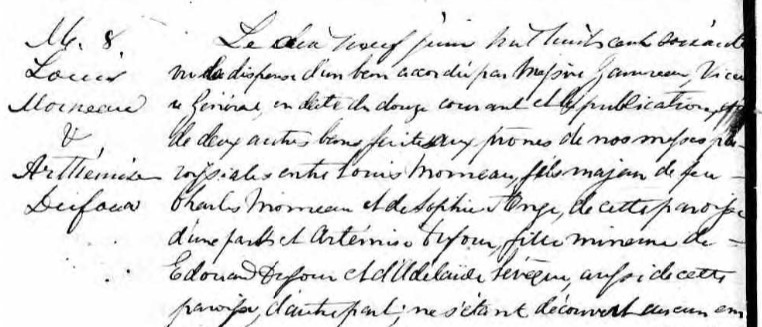 M. 8.
Louis
Moineau
&
Arthémise
Dufour
Le dix neuf juin mil huit cent soixante
vu la dispense d'un ban accordée par Messire Gauvreau, Vicai
re Général, en date du douze courant et la publication
de deux autres bans faite aux prônes de nos messes pa-
roissiales entre Louis Moineau, fils majeur de feu
Charles Moineau et de Sophie L'Ange, de cette paroisse
d'une part; et Artémise Dufour, fille mineure de
Edouard Dufour et d'Adelaïde Lévêque, aussi de cette
paroisse, d'autre part; ne s'étant découvert aucun em